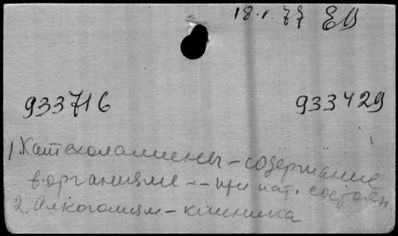 18.V.77 ЕВ
933716 933429
1. Катехоламины - содержание
в организме -- при пат. состоян.
2. Алкоголизм - клиника